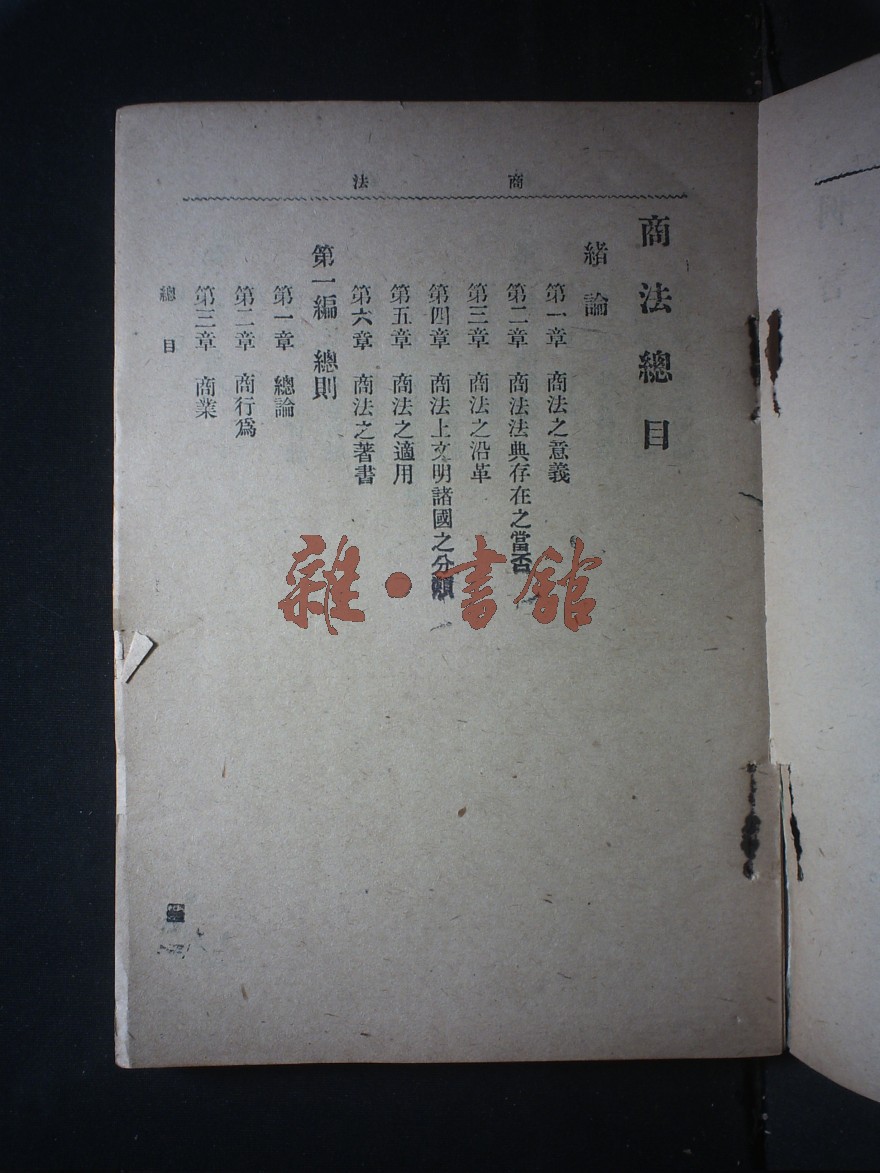 商法
商法總目
緒論
第一章 商法之意義
第二章 商法法典存在之當否
第三章 商法之沿革
第四章 商法上文明諸國之分類
第五章 商法之適用
第六章 商法之著書
第一編 總則
第一章 總論
第二章 商行爲
第三章 商業
總目
雜·書館